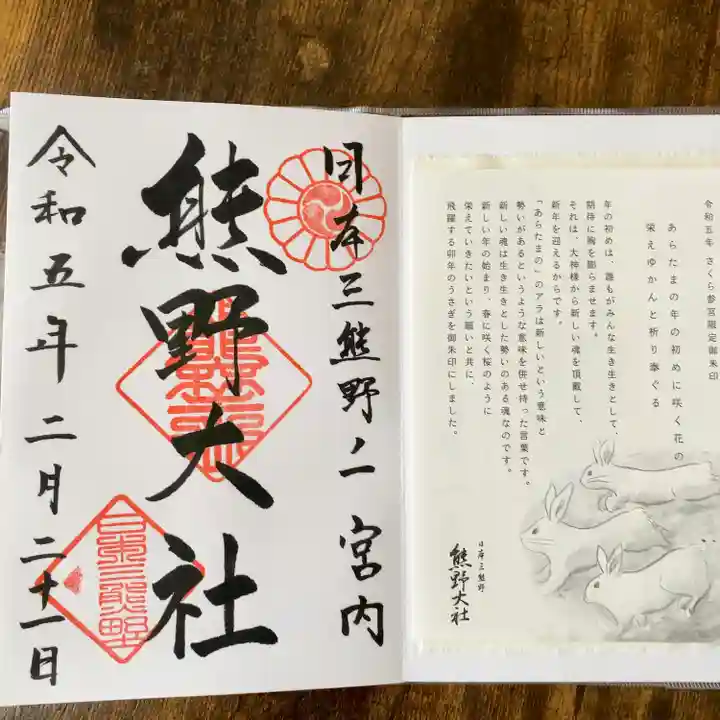 令和五年 さくら参宮限定御朱印
あらたまの年の初めに咲く花の
栄えゆかんと祈り奉ぐる
年の初めは、誰もがみんな生き生きとして、
期待に胸を膨らませます。
それは、大神様から新しい魂を頂戴して、
新年を迎えるからです。
「あらたまの」のアラは新しいという意味と
勢いがあるというような意味を併せ持った言葉です。
新しい魂は生き生きとした勢いのある魂なのです。
新しい年の始まり、春に咲く桜のように
栄えていきたいという願いと共に、
飛躍する卯年のうさぎを御朱印にしました。
日本三熊野
熊野大社
日本三熊野ノ一宮内
熊野大社
日本三熊野
令和五年二月二十一日